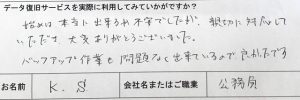 データ復旧サービスを実際に利用してみていかがですか？
始めは本当に出来るか不安でしたが、親切に対応して
いただき、大変ありがとうございました。
バックアップ作業も問題なく出来ているので良かったです
お名前 K.S 会社名またはご職業 公務員